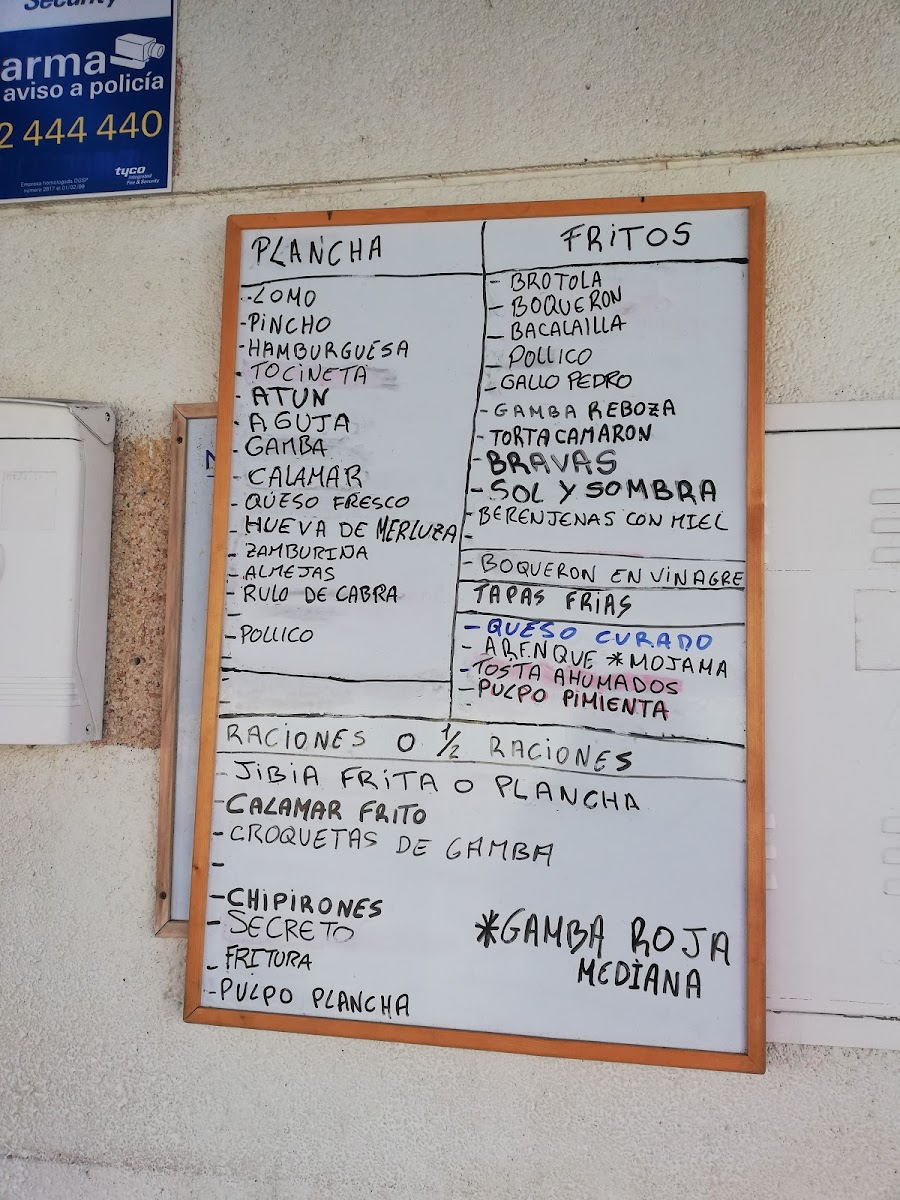 Security
arma
aviso a policía
2 444 440
tyco
Integrated
Fire & Security
Empresa homologada DGSP
número 2817 el 01/02/99
PLANCHA
-LOMO
-PINCHO
-HAMBURGUESA
- TOCINETA
- ATUN
- AGUJA
- GAMBA
- CALAMAR
- QUESO FRESCO
- HUEVA DE MERLUZA
- ZAMBURINA
- ALMEJAS
- RULO DE CABRA
-
-POLLICO
-
FRITOS
- BROTOLA
- BOQUERON
- BACALAILLA
- POLLICO
- GALLO PEDRO
- GAMBA REBOZA
- TORTA CAMARON
- BRAVAS
- SOL Y SOMBRA
- BERENJENAS CON MIEL
-
- BOQUERON EN VINAGRE
TAPAS FRIAS
- QUESO CURADO
- ARENQUE *MOJAMA
- TOSTA AHUMADOS
- PULPO PIMIENTA
-
RACIONES O 1/2 RACIONES
- JIBIA FRITA O PLANCHA
- CALAMAR FRITO
- CROQUETAS DE GAMBA
-
- CHIPIRONES
- SECRETO
- FRITURA
- PULPO PLANCHA
*GAMBA ROJA
MEDIANA